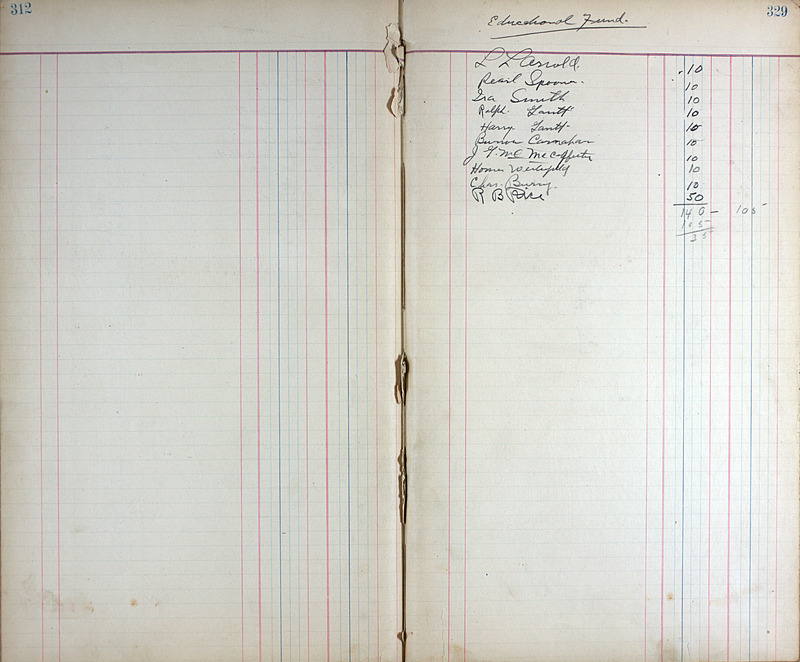 312
329
Educational Fund.
L L Arnold. .10
Pearl Spooner. 10
Ira Smith 10
Ralph Gantt 10
Harry Gantt 10
Burton Carnahan 10
J F Mc McCafferty 10
Homer 10
Chas. Burry. 10
R B Rice 50
140 — 105
105
35